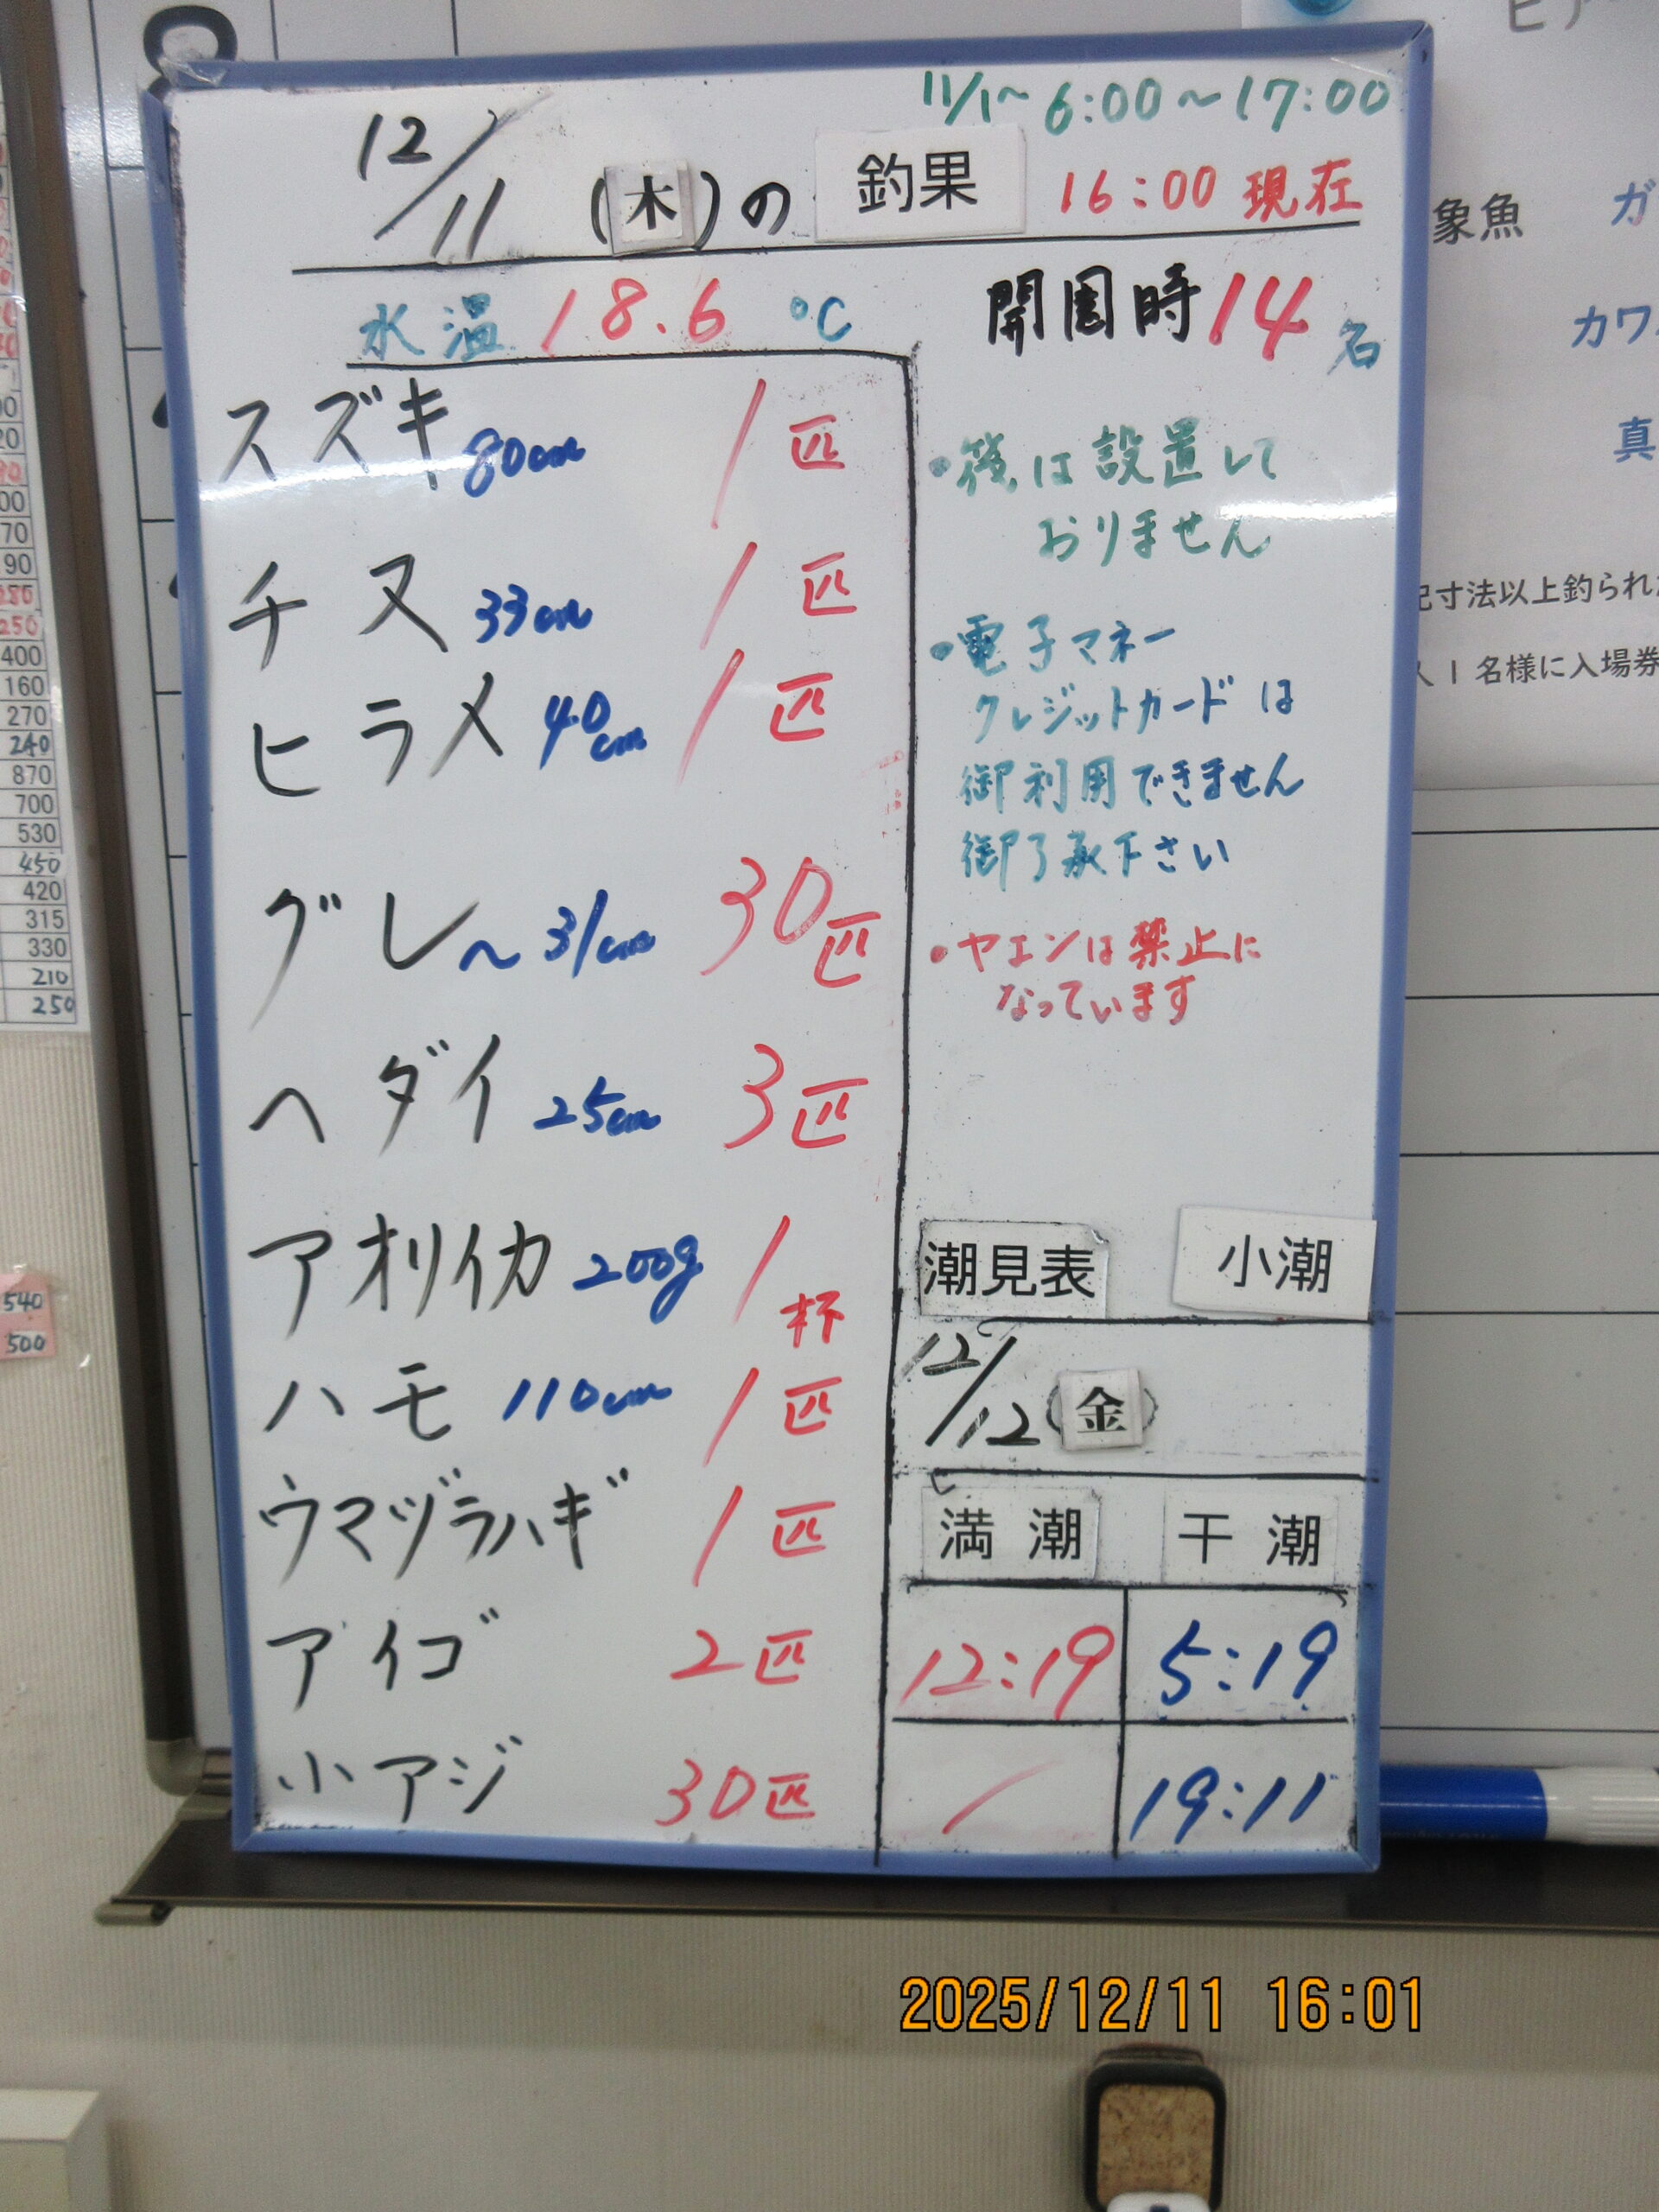 11/1~ 6:00~17:00
12/11 (木)の 釣果 16:00 現在
水温 18.6 ℃
開園時 14名
スズキ 80cm 1匹
チヌ 33cm 1匹
ヒラメ 40cm 1匹
グレ ~31cm 30匹
ヘダイ 25cm 3匹
アオリイカ 200g 1杯
ハモ 110cm 1匹
ウマヅラハギ 1匹
アイゴ 2匹
小アジ 30匹
は設置して
おりません
・電子マネー
クレジットカードは
御利用できません
御了承下さい
・ヤエンは禁止に
なっています
潮見表 小潮
12/12 (金)
満潮 干潮
12:19 5:19
/ 19:11
象魚
真
寸法以上釣られ
1名様に入場券
400
160
270
240
870
700
530
450
420
315
330
210
250
540
500
2025/12/11 16:01